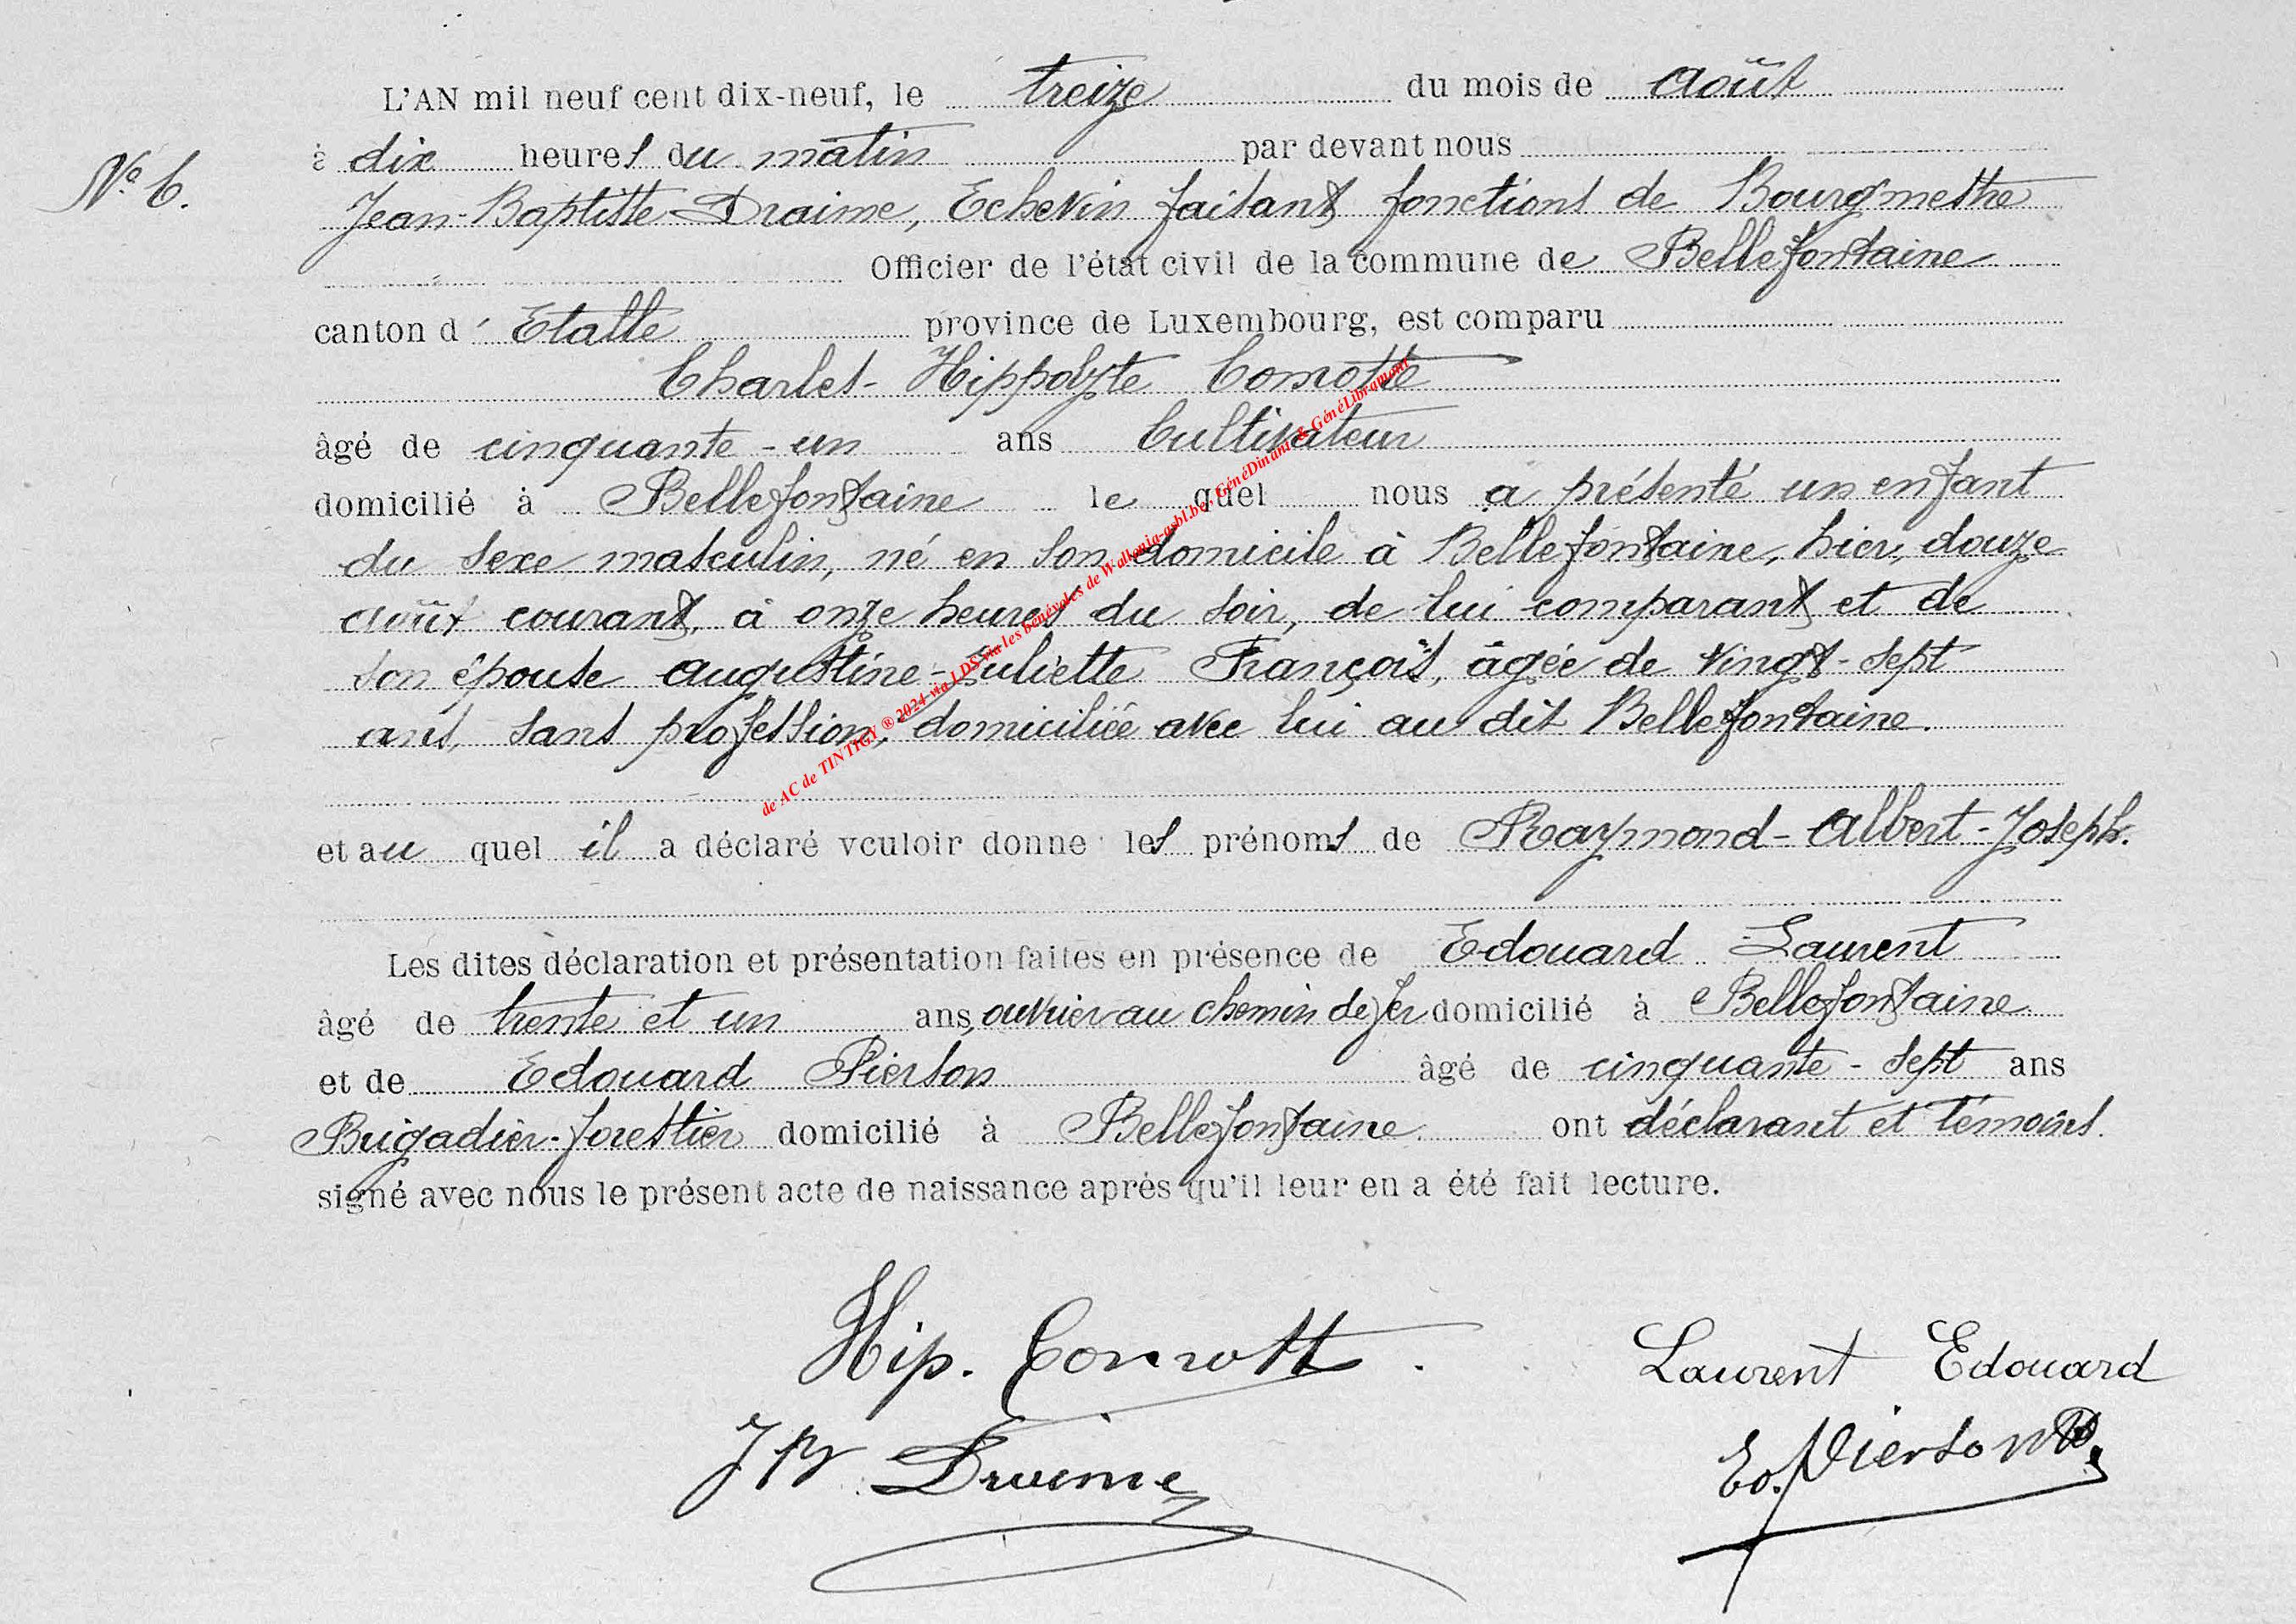 L'AN mil neuf cent dix-neuf, le treize du mois de Août
à dix heures du matin par devant nous
N° 6.
Jean-Baptiste Draime, Echevin faisant fonctions de Bourgmestre
Officier de l'état civil de la commune de Bellefontaine
canton d' Etalle province de Luxembourg, est comparu
Charles-Hippolyte Comotte
âgé de cinquante-un ans Cultivateur
domicilié à Bellefontaine le quel nous a présenté un enfant
du sexe masculin, né en son domicile à Bellefontaine, hier, douze
août courant, à onze heures du soir, de lui comparant et de
son épouse Augustine-Juliette François, âgée de vingt-sept
ans, sans profession, domiciliée avec lui au dit Bellefontaine.
de AC de TINTIGY ® 2024 via LDS via les bénévoles de Wallonia-asbl.be, GénéDinant & GénéLibramont
et au quel il a déclaré vouloir donne les prénoms de Raymond-Albert-Joseph.
Les dites déclaration et présentation faites en présence de Edouard Laurent
âgé de trente et un ans, ouvrier au chemin de fer domicilié à Bellefontaine
et de Edouard Pierson âgé de cinquante-sept ans
Brigadier-forestier domicilié à Bellefontaine ont déclarant et témoins.
signé avec nous le présent acte de naissance après qu'il leur en a été fait lecture.
Hip. Comott.
Laurent Edouard
JB Draime
Ed. Pierson